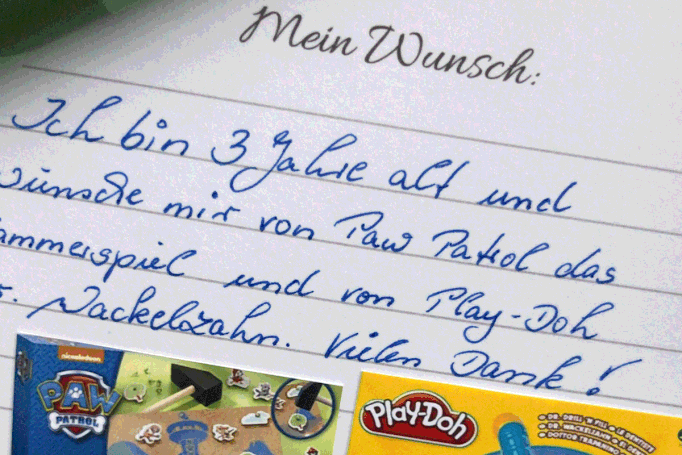 Mein Wunsch:
Ich bin 3 Jahre alt und
wünsche mir von Paw Patrol das
ammerspiel und von Play-Doh
r. Wackelzahn. Vielen Dank!
nickelodeon
PAW
PATROL
Play-Doh
DR. DRILL 'N FILL
LE DENTISTE
DR. WACKELZAHN
DOTTOR TRAPANINO